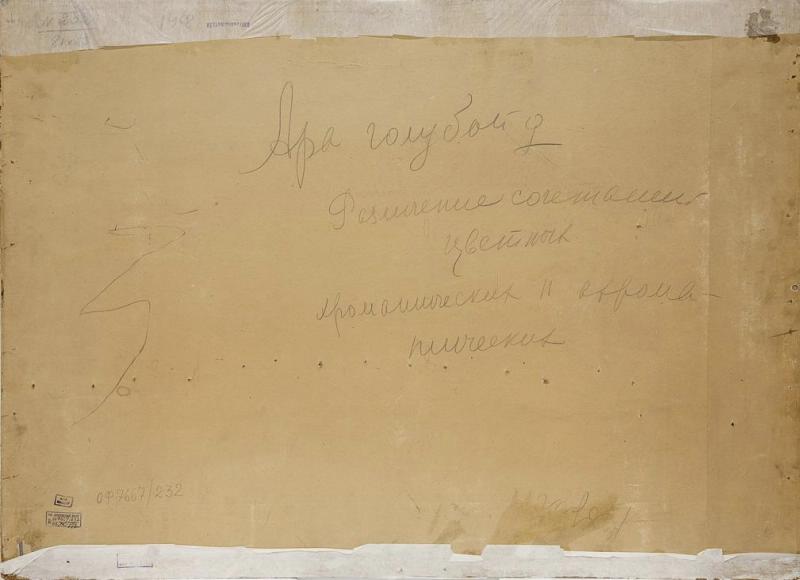 1968
Ара голубой ♀
Различение сочетаний
цветных
хроматических и ахрома-
тических
ОФ7667/232